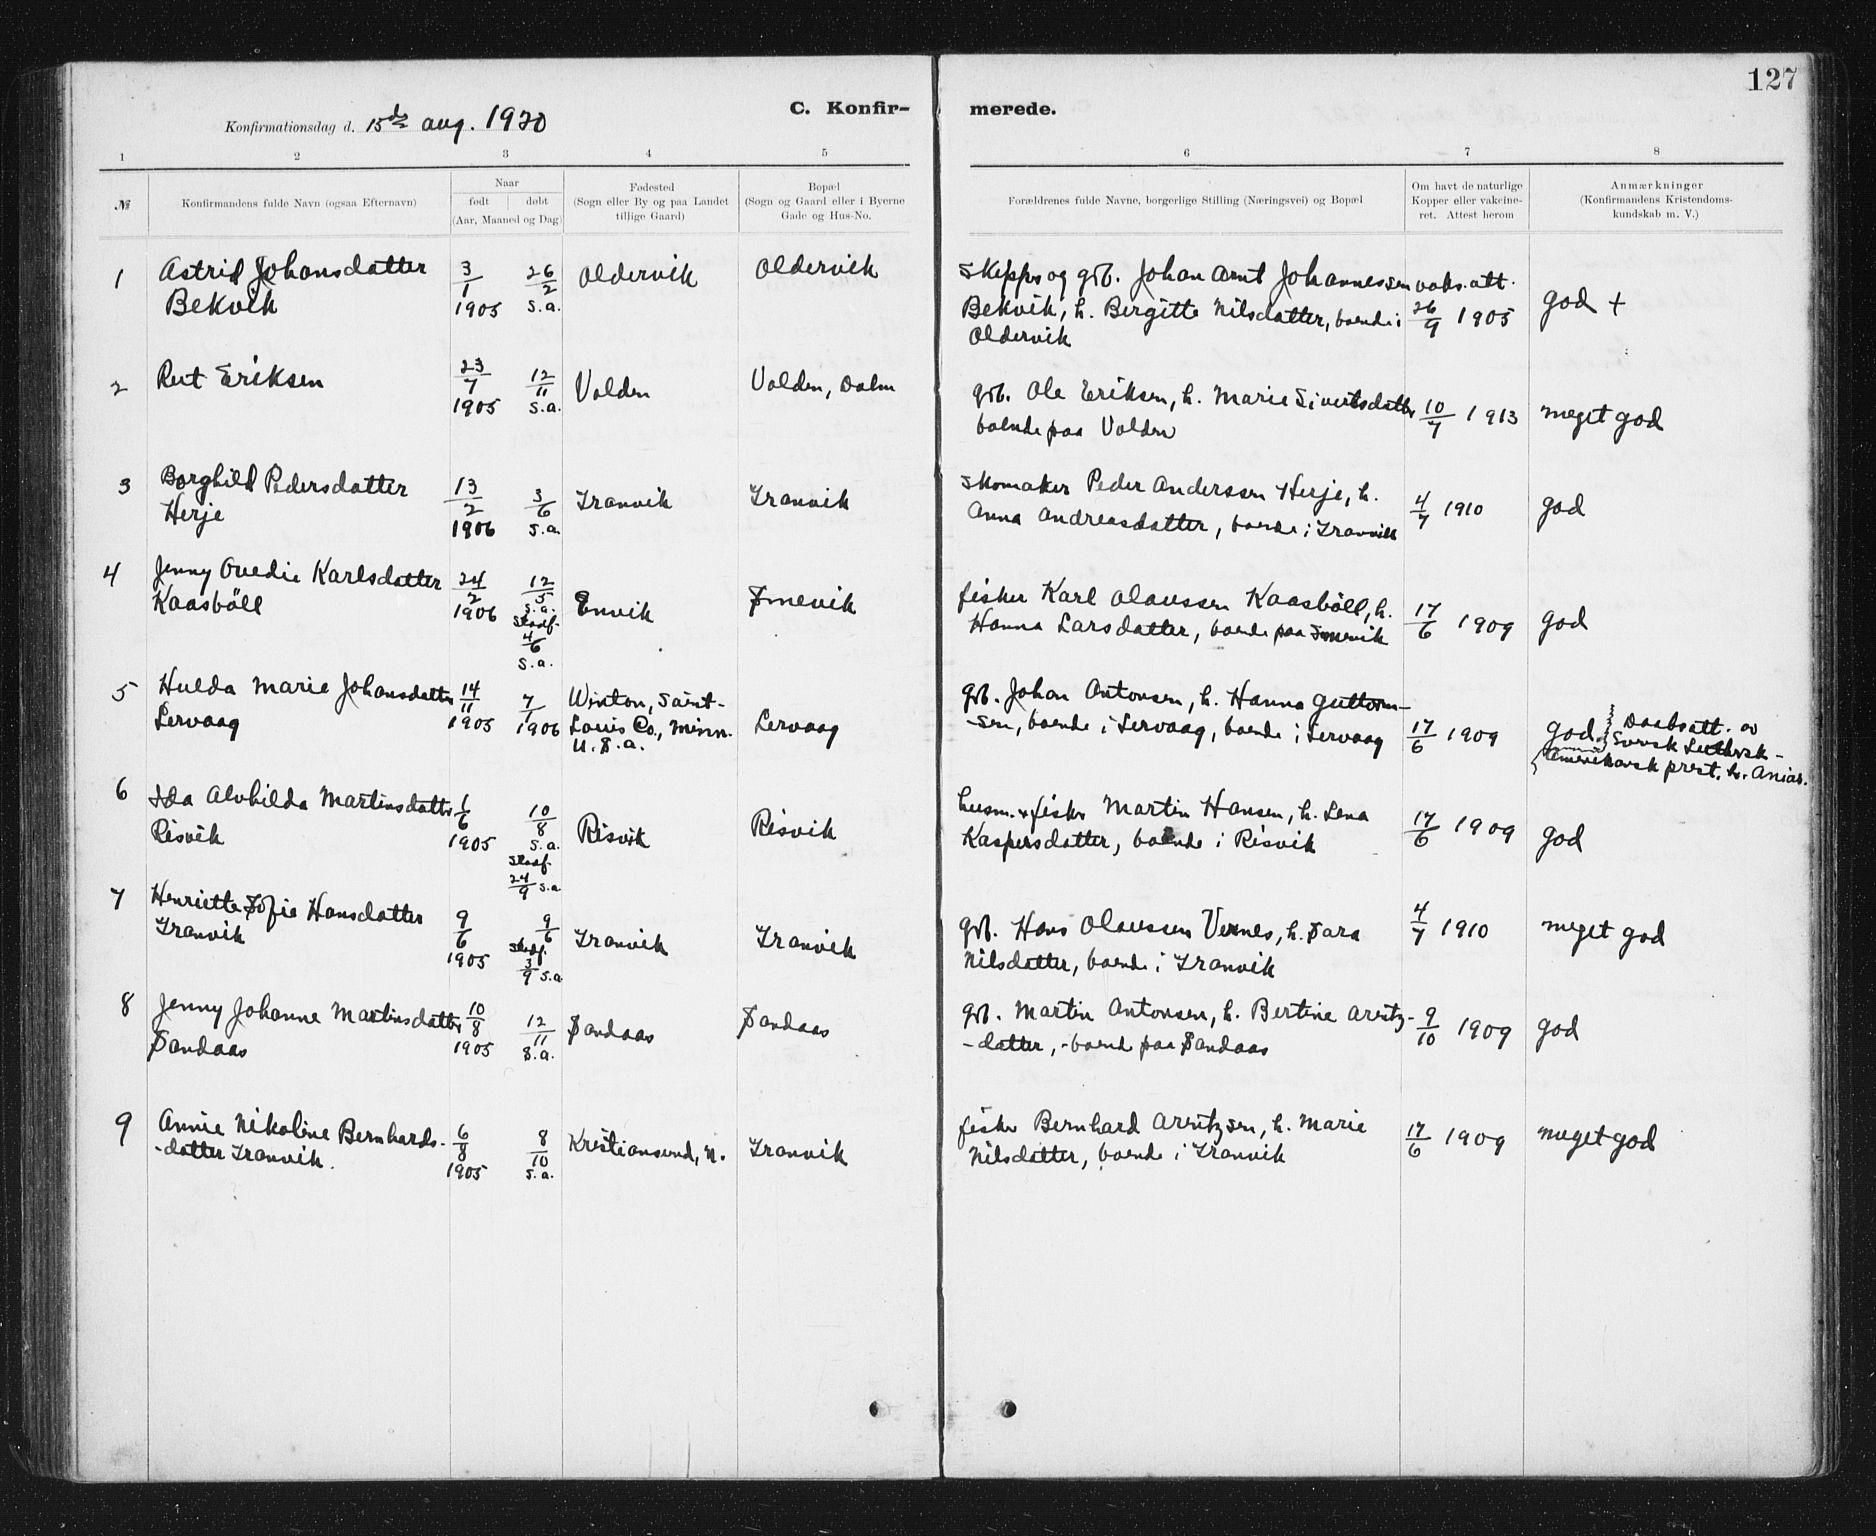 127
C. Konfir- merede.
Konfirmationsdag d. 15de aug. 1920
1 2 3 4 5 6 7 8
№
Konfirmandens fulde Navn (ogsaa Efternavn)
Naar
født døbt
(Aar, Maaned og Dag)
Fødested
(Sogn eller By og paa Landet
tillige Gaard)
Bopæl
(Sogn og Gaard eller i Byerne
Gade og Hus-No.
Forældrenes fulde Navne, borgerlige Stilling (Næringsvei) og Bopæl
Om havt de naturlige
Kopper eller vakcine-
ret. Attest herom
Anmærkninger
(Konfirmandens Kristendoms-
kundskab m. V.)
1 Astrid Johansdatter
Bekvik
3/1 1905
26/2 s.a.
Oldervik
Oldervik
Skipper og gdb. Johan Arnt Johannessen
Bekvik, h. Bergitte Nilsdatter, boende i
Oldervik
vaks. att.
26/9 1905
god +
2 Rut Eriksen
23/7 1905
12/11 s.a.
Volden
Volden, Dalm
gdb. Ole Eriksen, h. Marie Sivertsdatter
boende paa Volden
10/7 1913
meget god
3 Borghild Pedersdatter
Herje
13/2 1906
3/6 s.a.
Tranvik
Tranvik
Skomaker Peder Anderssen Herje, h.
Anna Andreasdatter, boende i Tranvik
4/7 1910
god
4 Jenny Ovedie Karlsdatter
Kaasböll
24/2 1906
12/5 s.a.
Stadf.
4/6 s.a.
Envik
Smevik
fisker Karl Olaussen Kaasböll, h.
Hanna Larsdatter, boende paa Smevik
17/6 1909
god
5 Hulda Marie Johansdatter
Lervaag
14/11 1905
7/1 1906
Winton, Saint-
Louis Co., Minn.
U.S.a.
Lervaag
gdb. Johan Antonsen, h. Hanna Guttorm-
-sen, boende i Lervaag, boende i Lervaag
17/6 1909
god. Daabsatt. av
Svensk Luthersk-
Amerikansk prest. h.
6 Ida Alvhilda Martinsdatter
Risvik
1/6 1905
10/8 s.a.
Stadf.
24/9 s.a.
Risvik
Risvik
husm. & fisker Martin Hansen, h. Lena
Kaspersdatter, boende i Risvik
17/6 1909
god
7 Henriette Sofie Hansdatter
Tranvik
9/6 1905
9/6
Stadf.
3/9 s.a.
Tranvik
Tranvik
gdb. Hans Olaussen Vernes, h. Sara
Nilsdatter, boende i Tranvik
4/7 1910
meget god
8 Jenny Johanne Martinsdatter
Sandaas
10/8 1905
12/11 s.a.
Sandaas
Sandaas
gdb. Martin Antonsen, h. Bertine Arentz-
-datter, -boende paa Sandaas
9/10 1909
god
9 Annie Nikoline Bernhards-
-datter Tranvik.
6/8 1905
8/10 s.a.
Kristiansund, N.
Tranvik
fisker Bernhard Arentzsen, h. Marie
Nilsdatter, boende i Tranvik
17/6 1909
meget god